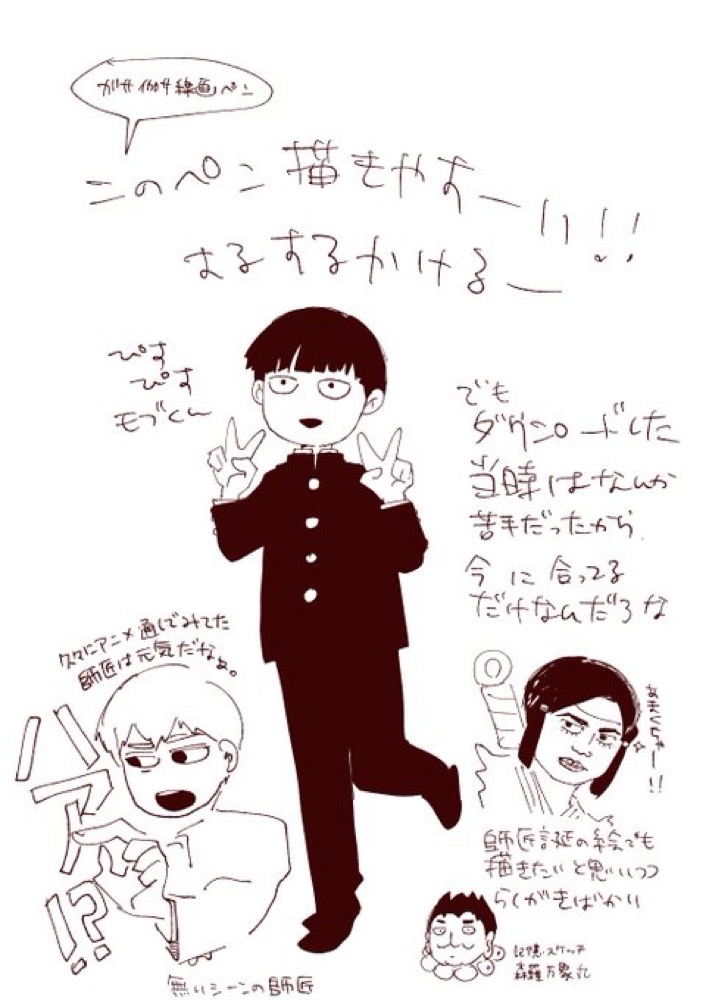 ガサ伽サ線画ペン
このペン描きやすーい!!
するするかけるー
ぴす
ぴす
モブくん
でも
ダウンロードした
当時はなんか
苦手だったから
今に合ってる
だけなんだろな
久々にアニメ通しでみてた
師匠は元気だなぁ。
ハアア!?
無いシーンの師匠
あまくちゃー!!
師匠誕の絵でも
描きたいと思いつつ
らくがきばかり
記憶スケッチ
森羅万象丸